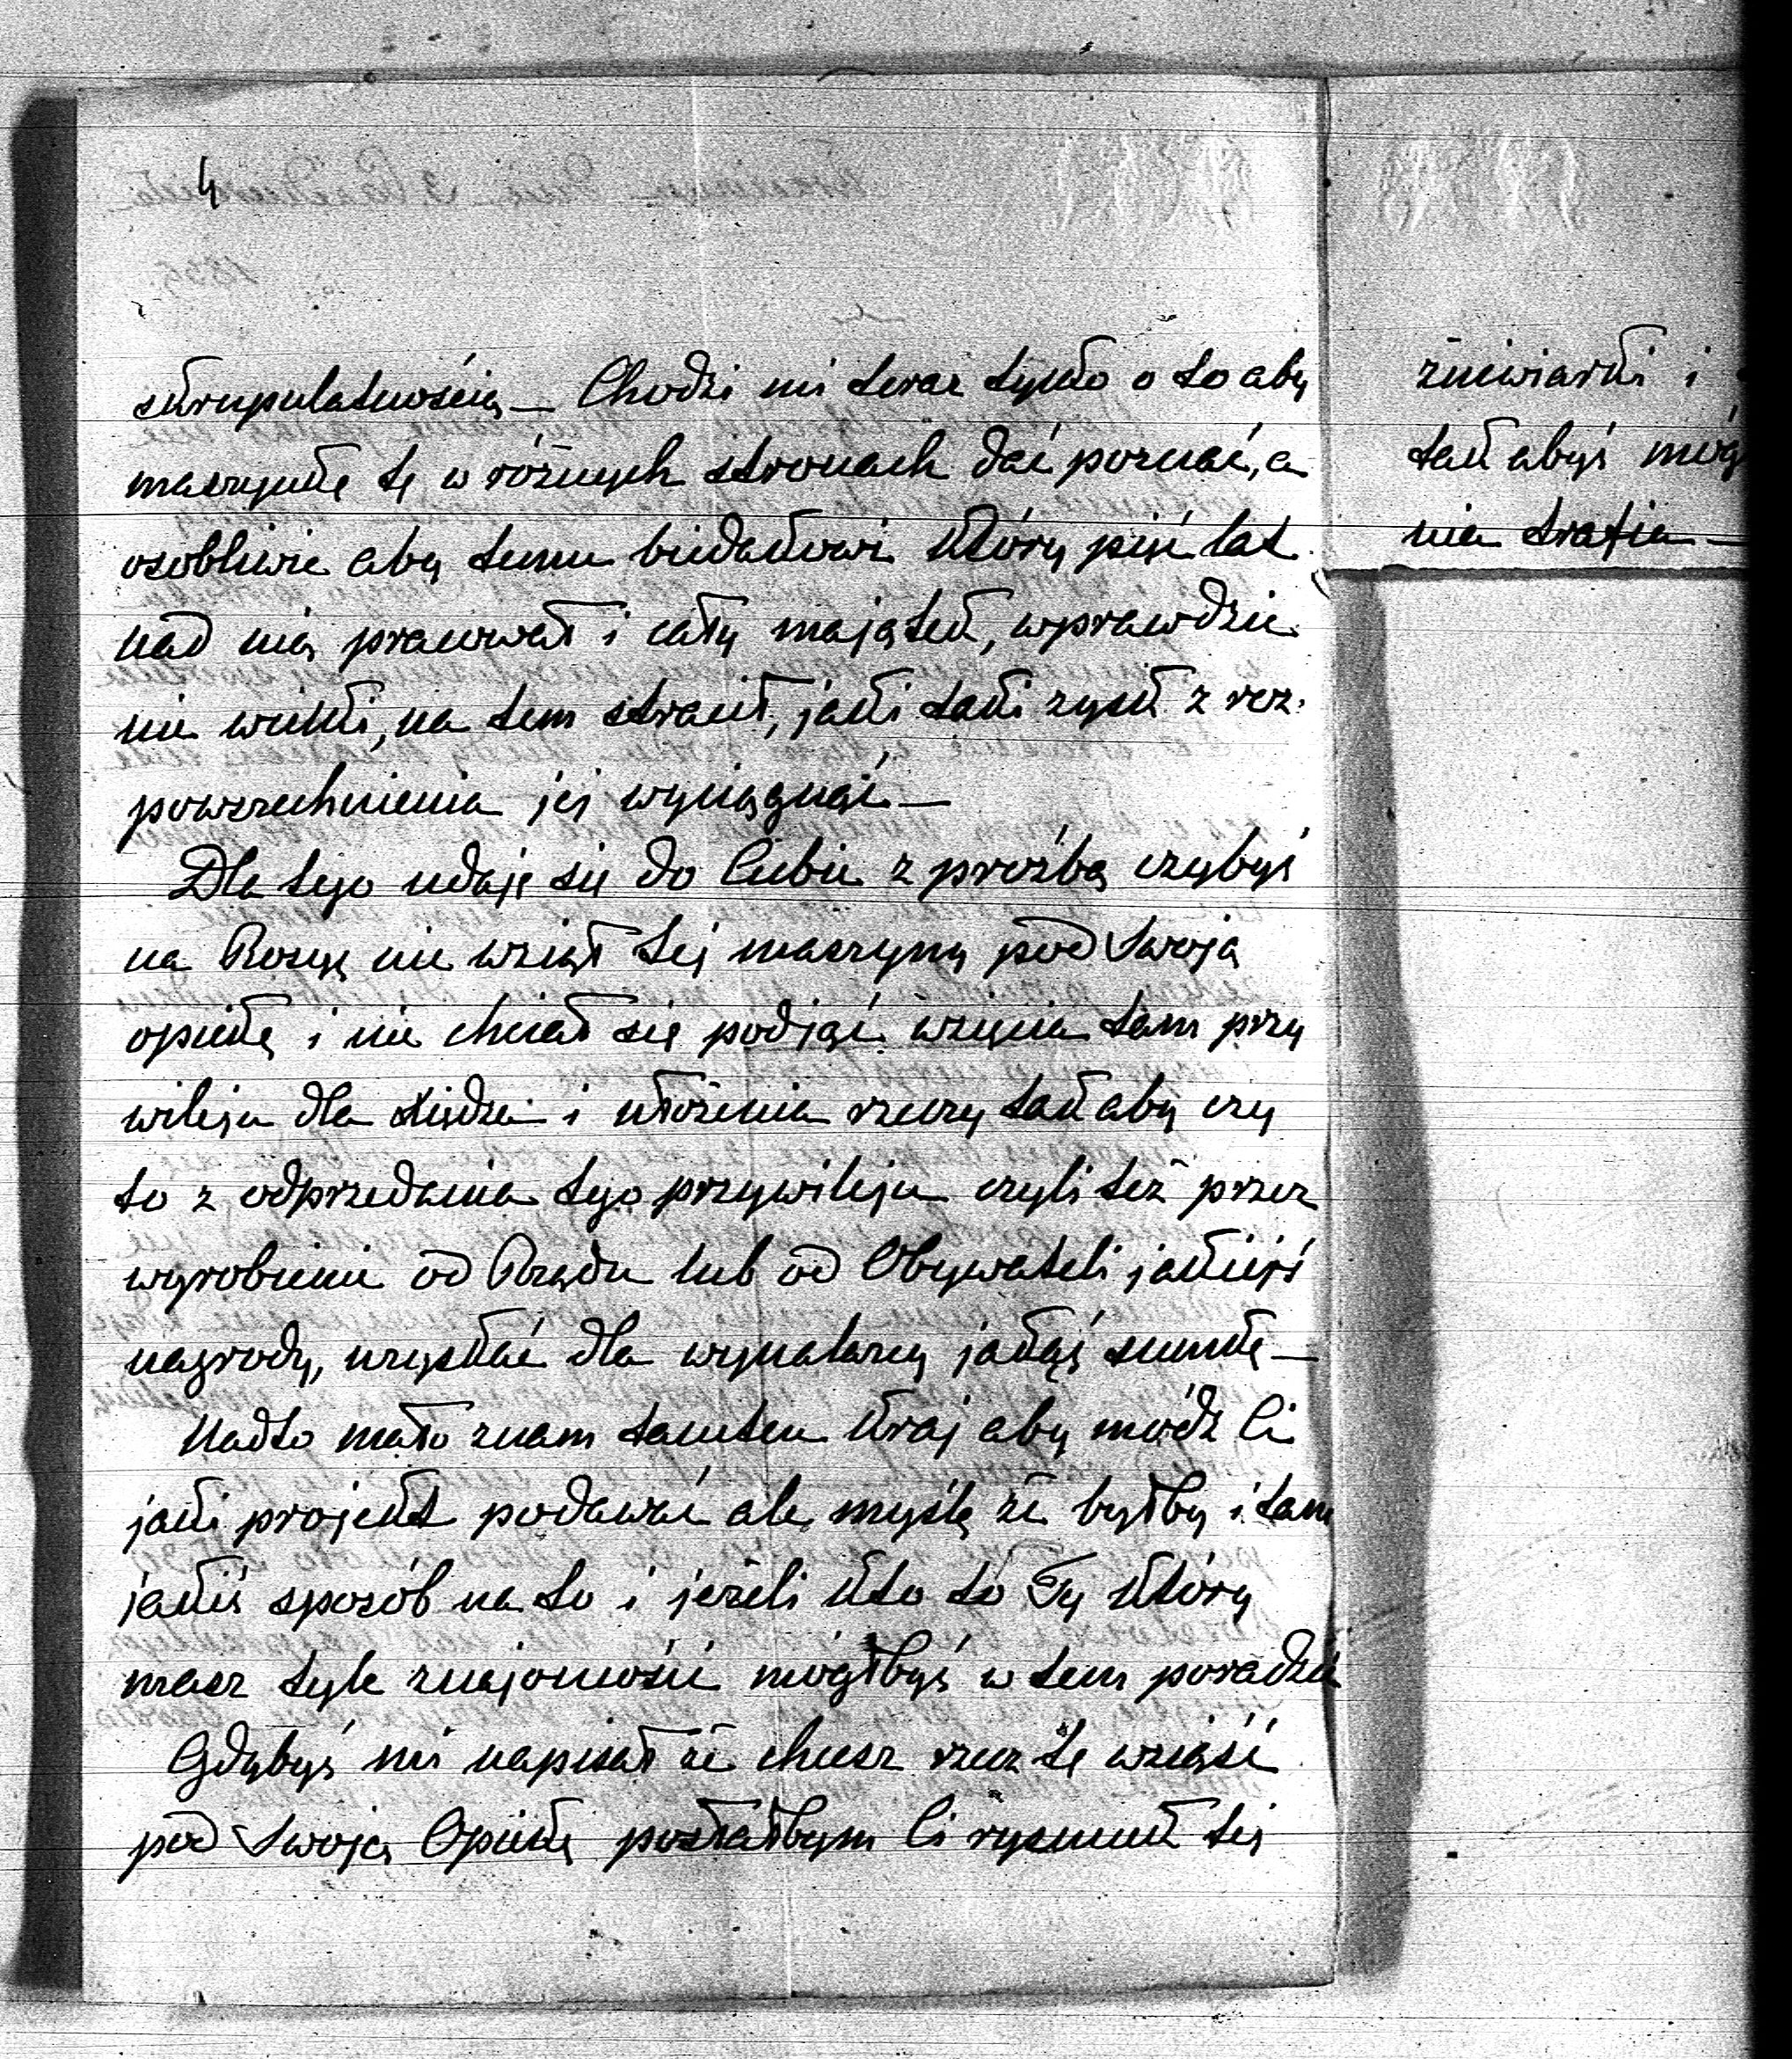 4
skrupulatnością — Chodzi mi teraz tylko o to aby
maszynkę tę w różnych stronach dać poznać, a
osobliwie aby temu biedakowi który pięć lat
nad nią pracował i cały majątek, wprawdzie
nie wielki, na tem stracił, jaki taki zysk z roz-
powszechnienia jej wyciągnąć —
Dla tego udaję się do Ciebie z prośbą czybyś
na Rosyę nie wziął tej maszyny pod Swoją
opiekę i nie chciał się podjąć wzięcia tam przy
wileju dla księdza i ułożenia rzeczy tak aby czy
to z odprzedania tego przywileju czyli też przez
wyrobienie od Rządu lub od Obywateli jakiejś
nagrody, uzyskać dla wynalazcy jakąś sumkę —
Nadto mało znam tamten kraj aby módz Ci
jaki projekt podawać ale myślę że byłby i tam
jakiś sposób na to i jeżeli kto to Ty który
masz tyle znajomości mógłbyś w tem poradzić
Gdybyś mi napisał że chcesz rzecz tę wziąść
pod Swoją Opiekę posłałbym Ci rysunek tej
żniwiarki i
tak abyś móg
nia trafia —